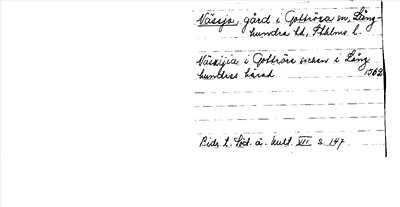 Nässja, gård i Gottröra sn, Lång-
hundra hd, Sthlms l.
Näsigia i Gottröre socken i Lång
hundres härad 1562
Bidr. t. Söd. ä. kult. XII s. 147